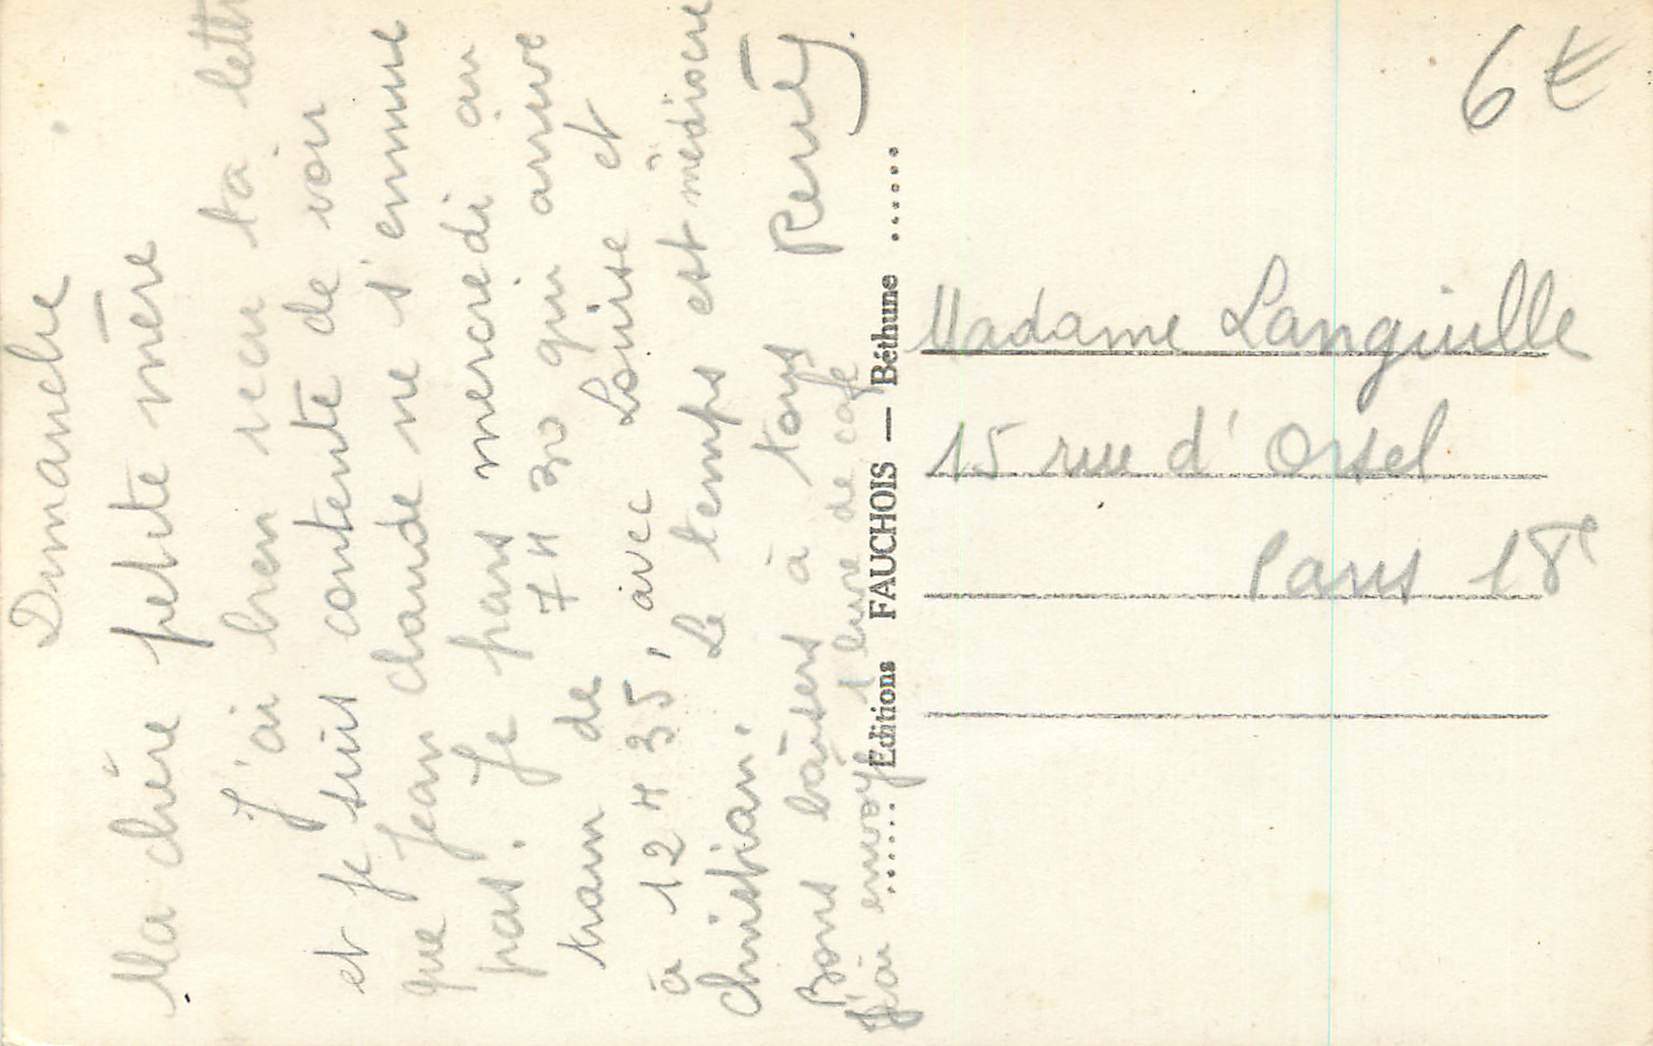 Dimanche
Ma chère petite mère
J'ai bien reçu ta lettre
et je suis contente de voir
que Jean Claude ne s'ennuie
pas. Je pars mercredi au
train de 7 H 30 qui arrive
à 12 H 35, avec Louise et
Christian. Le temps est médiocre
Bons baisers à tous
J'ai envoyé 1 livre de café
Editions FAUCHOIS — Béthune
6 €
Madame Languille
15 rue d'Orsel
Paris 18e